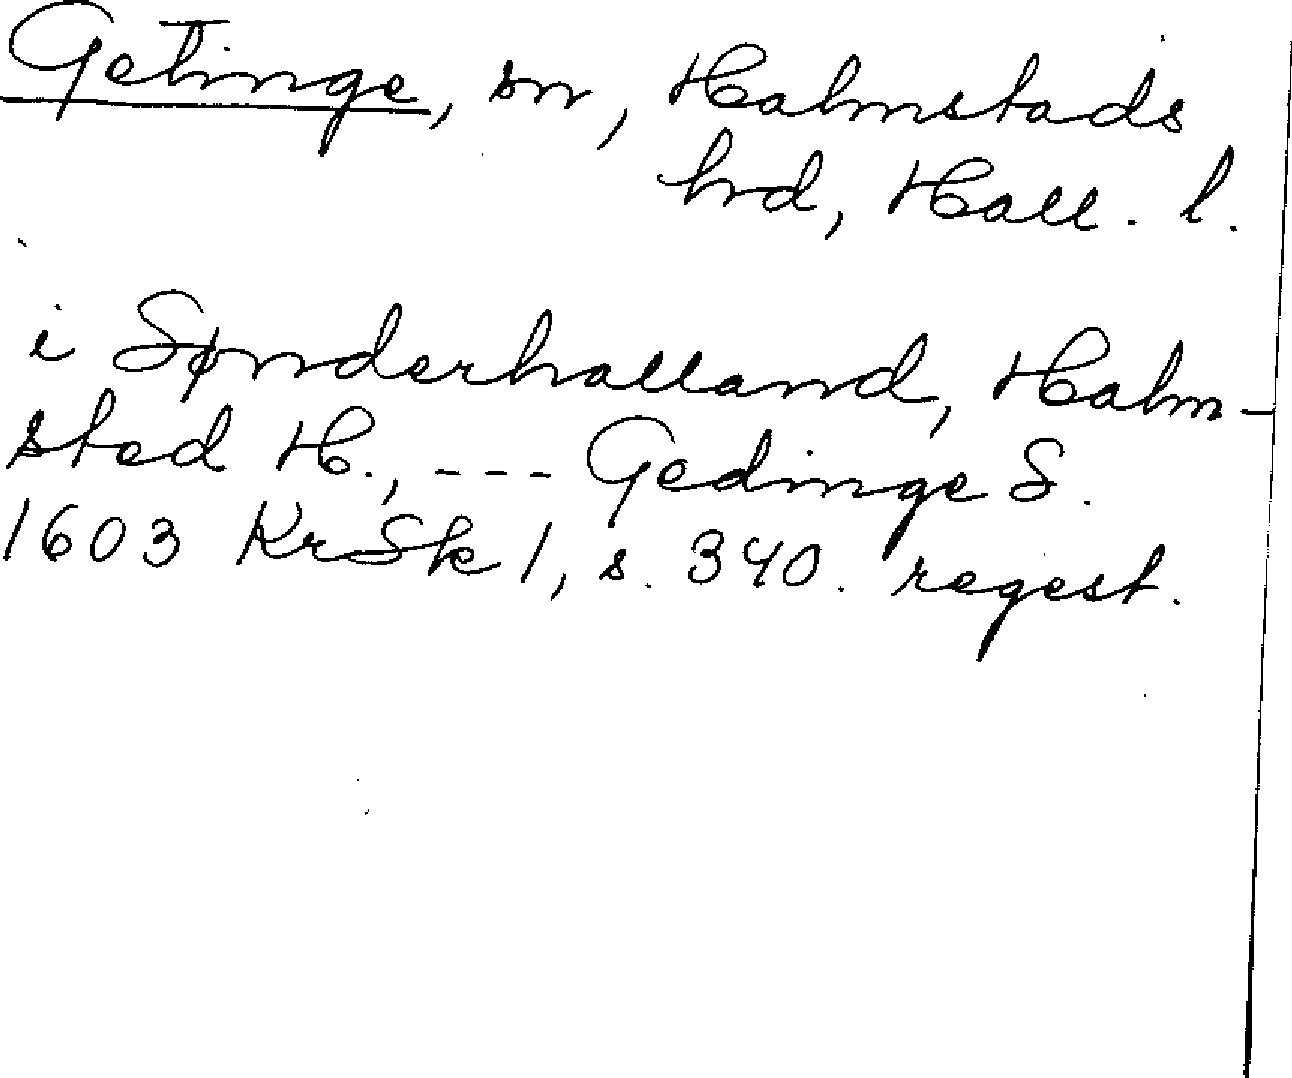 Getinge, sn, Halmstads
hrd, Hall. l.
i Sønderhalland, Halm-
sted H., --- Gedinge S.
1603 KrSk 1, s. 340. regest.